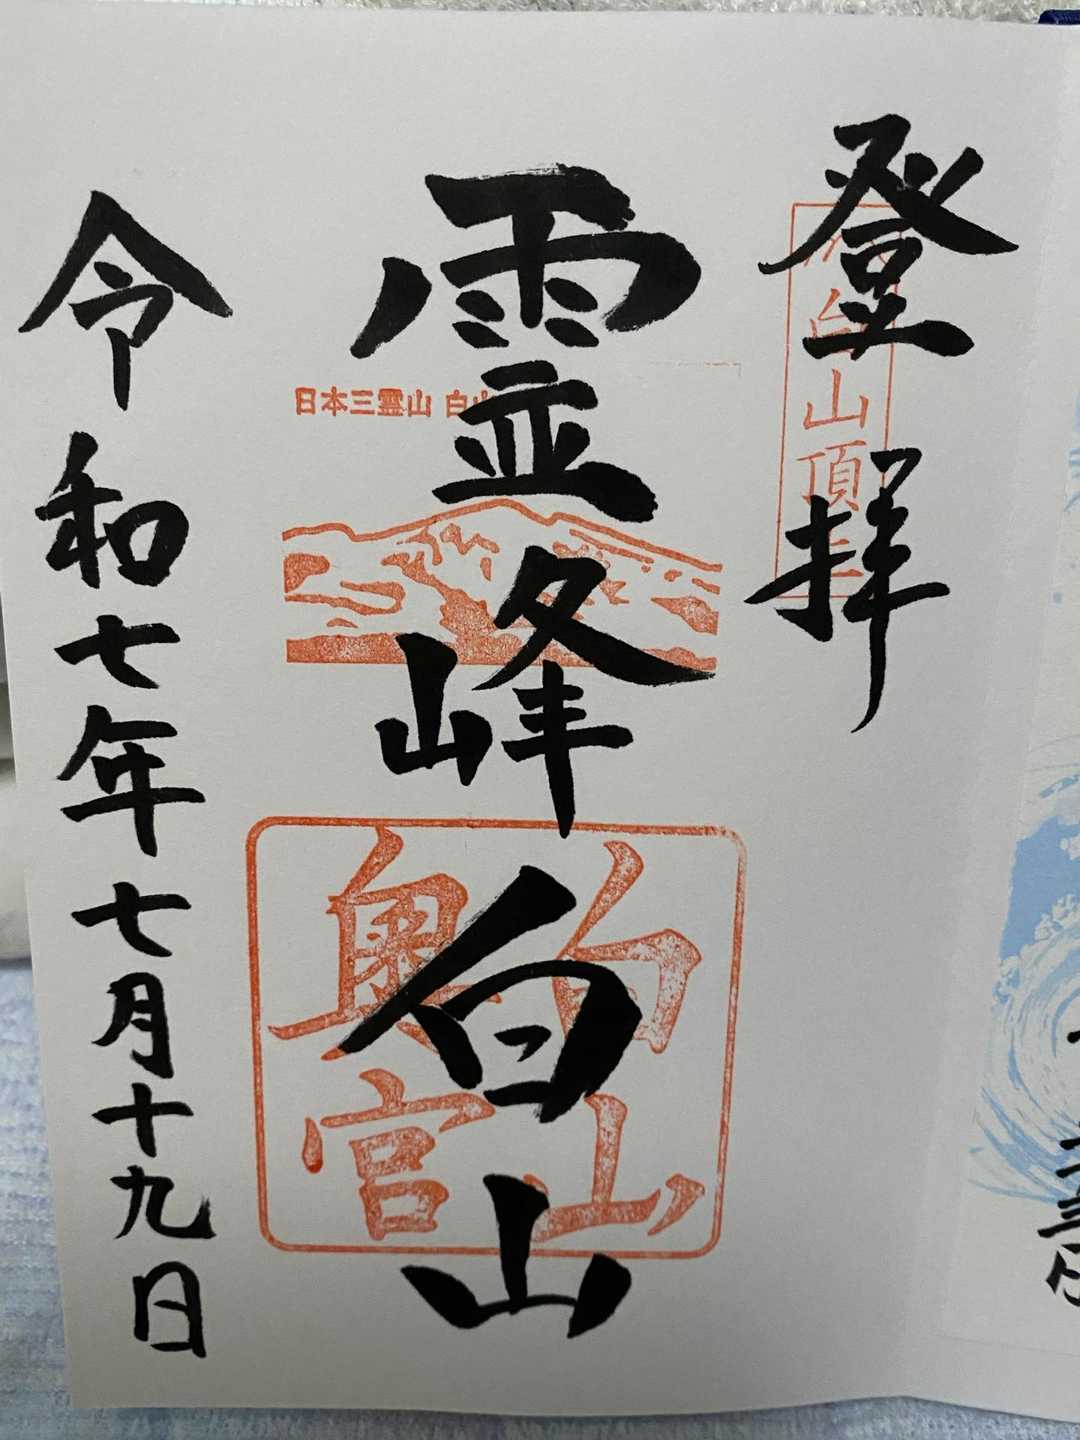 登拝
山頂
霊峰白山
日本三霊山 白山
白山
奥宮
令和七年七月十九日